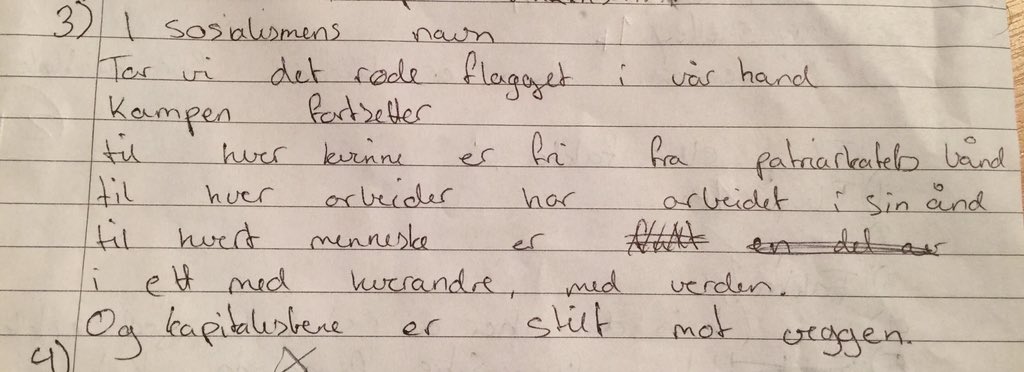 3) I sosialismens navn
Tar vi det røde flagget i vår hand
Kampen fortsetter
til hver kvinne er fri fra patriarkatets bånd
til hver arbeider har arbeidet i sin ånd
til hvert menneske er en del av
i ett med hverandre, med verden.
Og kapitalistene er stilt mot veggen.
4) X